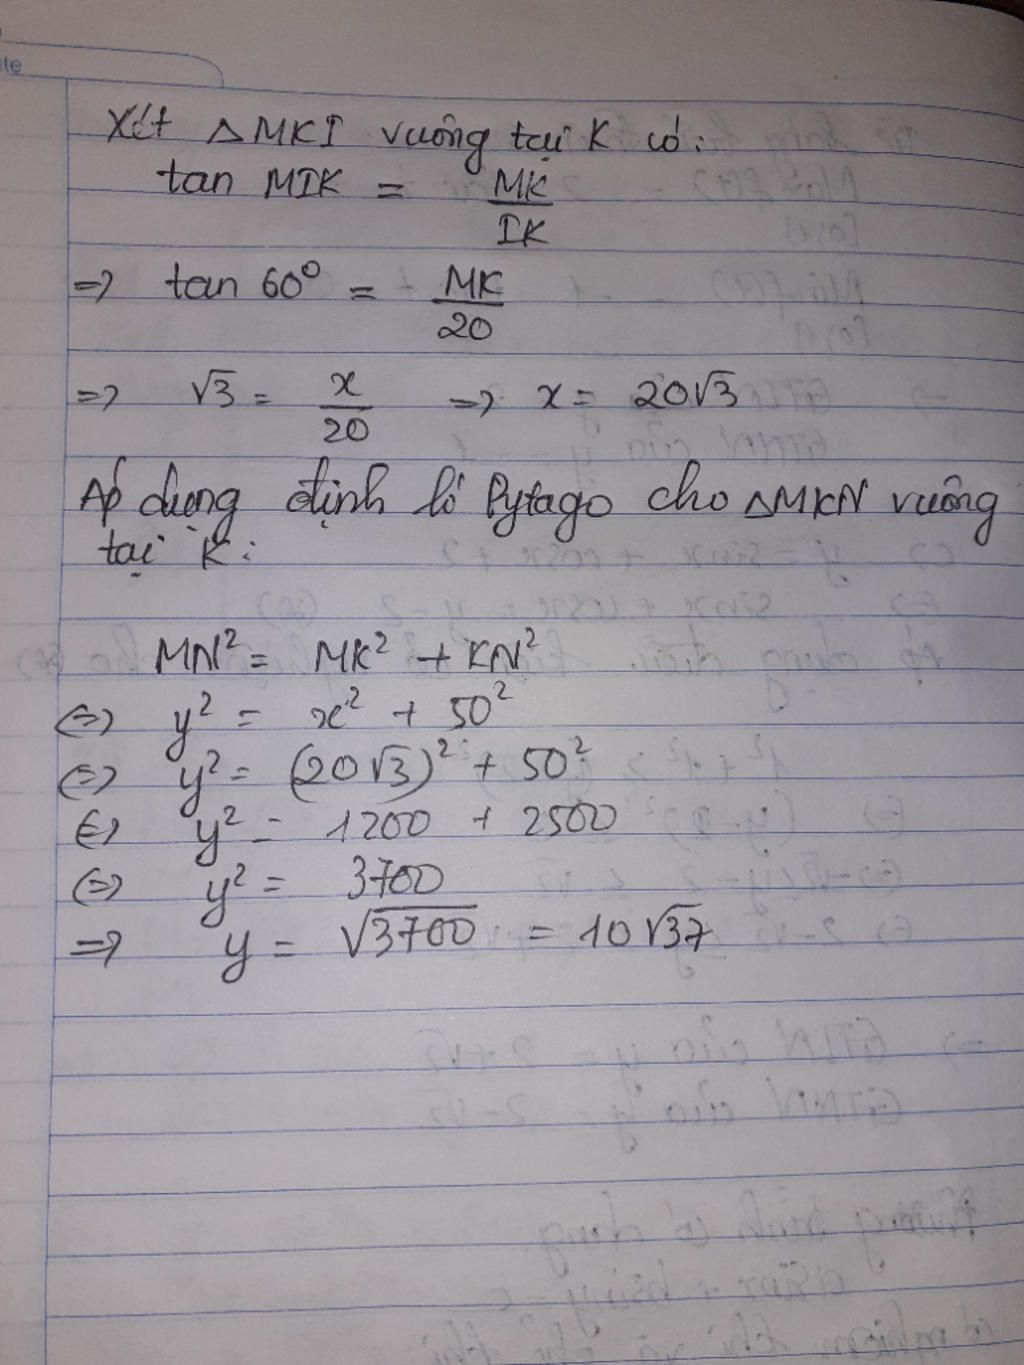 Xét △MKI vuông tại K có:
tan MIK = MK/IK
=> tan 60° = MK/20
=> √3 = x/20 => x = 20√3
Áp dụng định lí Pytago cho △MKN vuông
tại K:
MN² = MK² + KN²
<=> y² = x² + 50²
<=> y² = (20√3)² + 50²
<=> y² = 1200 + 2500
<=> y² = 3700
=> y = √3700 = 10√37